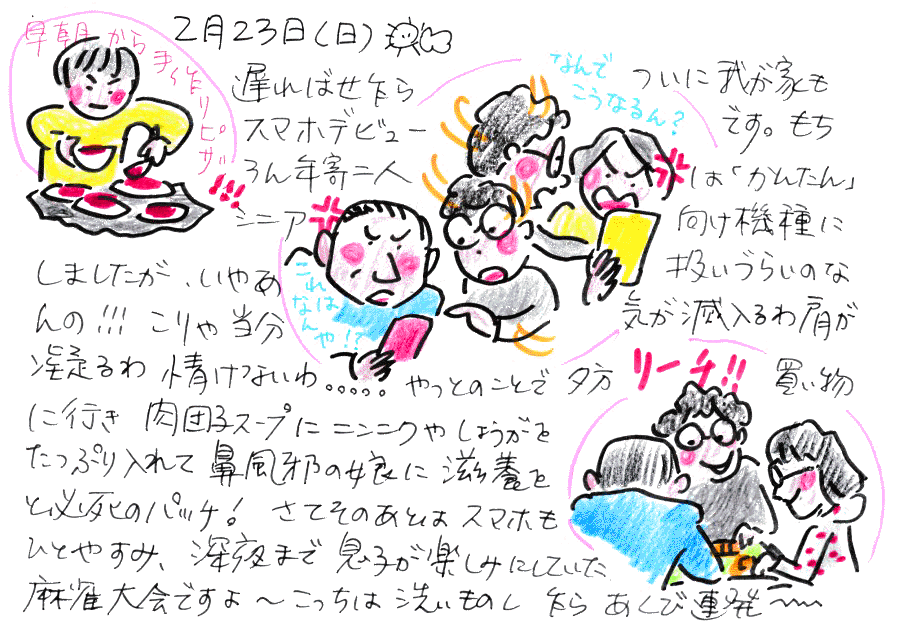 2月23日(日)
早朝から手作りピザ!!!
遅ればせ乍ら ついに我が家も
スマホデビュー です。もち
ろん年寄二人 は「かんたん」
シニア 向け機種に
しましたが、いやあ 扱いづらいのな
んの!!! こりゃ当分 気が滅入るわ肩が
凝るわ 情けないわ..... やっとのことで 夕方 買い物
に行き 肉団子スープに ニンニクや しょうがを
たっぷり入れて 鼻風邪の娘に 滋養を
と必死のパッチ! さてそのあとは スマホも
ひとやすみ、深夜まで 息子が楽しみにしていた
麻雀大会ですよ〜こっちは 洗いものし 乍ら あくび連発〜
なんで
こうなるん?
これは
なんや!?
リーチ!!